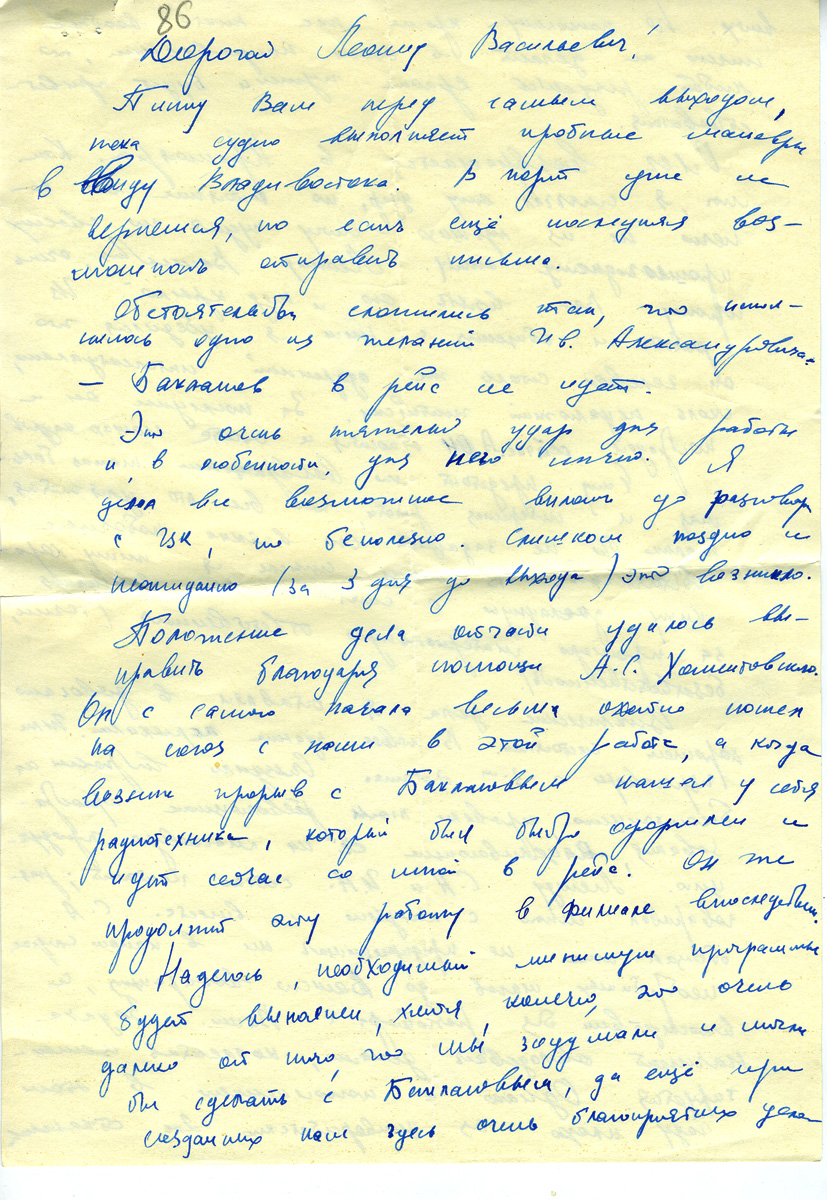 86
Дорогой Леонид Васильевич!
Пишу Вам перед самым выходом,
пока судно выполняет пробные маневры
в виду Владивостока. В порт уже не
вернемся, но есть ещё последняя воз-
можность отправить письма.
Обстоятельства сложились так, что испол-
нилось одно из желаний Ив. Александровича
— Баклашов в рейс не идет.
Это очень тяжелый удар для работы
и, в особенности, для него лично. Я
делал все возможное вплоть до разговора
с ЦК, но бесполезно. Слишком поздно и
неожиданно (за 3 дня до выхода) это возникло.
Положение дела отчасти удалось вы-
править благодаря помощи А.С.
Он с самого начала весьма охотно пошел
на союз с нами в этой работе, а когда
возник прорыв с Баклашовым нашел у себя
радиотехника, который был быстро оформлен и
идет сейчас со мной в рейс. Он же
продолжит эту работу в филиале впоследствии.
Надеюсь, необходимый минимум программы
будет выполнен, хотя, конечно, это очень
далеко от того, что мы задумали и могли
бы сделать с Баклашовым, да ещё при
созданных нам здесь очень благоприятных